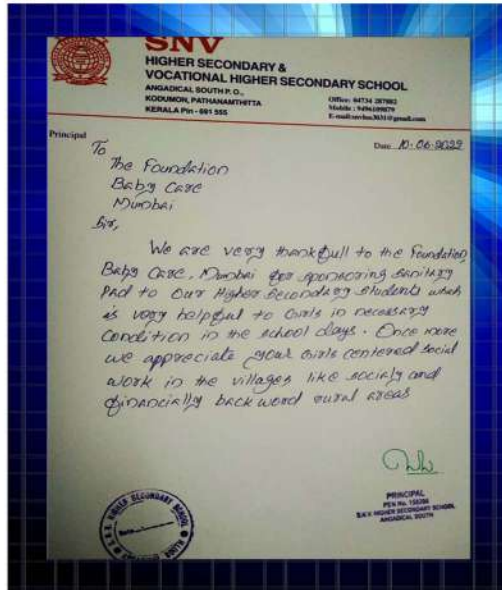 SNV
HIGHER SECONDARY &
VOCATIONAL HIGHER SECONDARY SCHOOL
ANGADICAL SOUTH P. O.,
KODUMON, PATHANAMTHITTA
KERALA Pin - 691 555
Office: 04734 287802
Principal
Date 10-06-2022
To
The Foundation
Baby Care
Mumbai
Sir,
We are very thankfull to the Foundation,
Baby Care, Mumbai for sponsoring sanitary
Pad to our Higher Secondary students which
is very helpful to Girls in necessary
Condition in the school days. Once more
we appreciate your Girls centered social
work in the villages like socialy and
financially back word rural areas
PRINCIPAL
PEN No.
S.N.V. HIGHER SECONDARY SCHOOL
ANGADICAL SOUTH
HIGHER SECONDARY SCHOOL